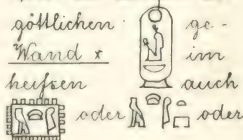 göttlichen ge-
Wand * im
heißen auch
oder oder